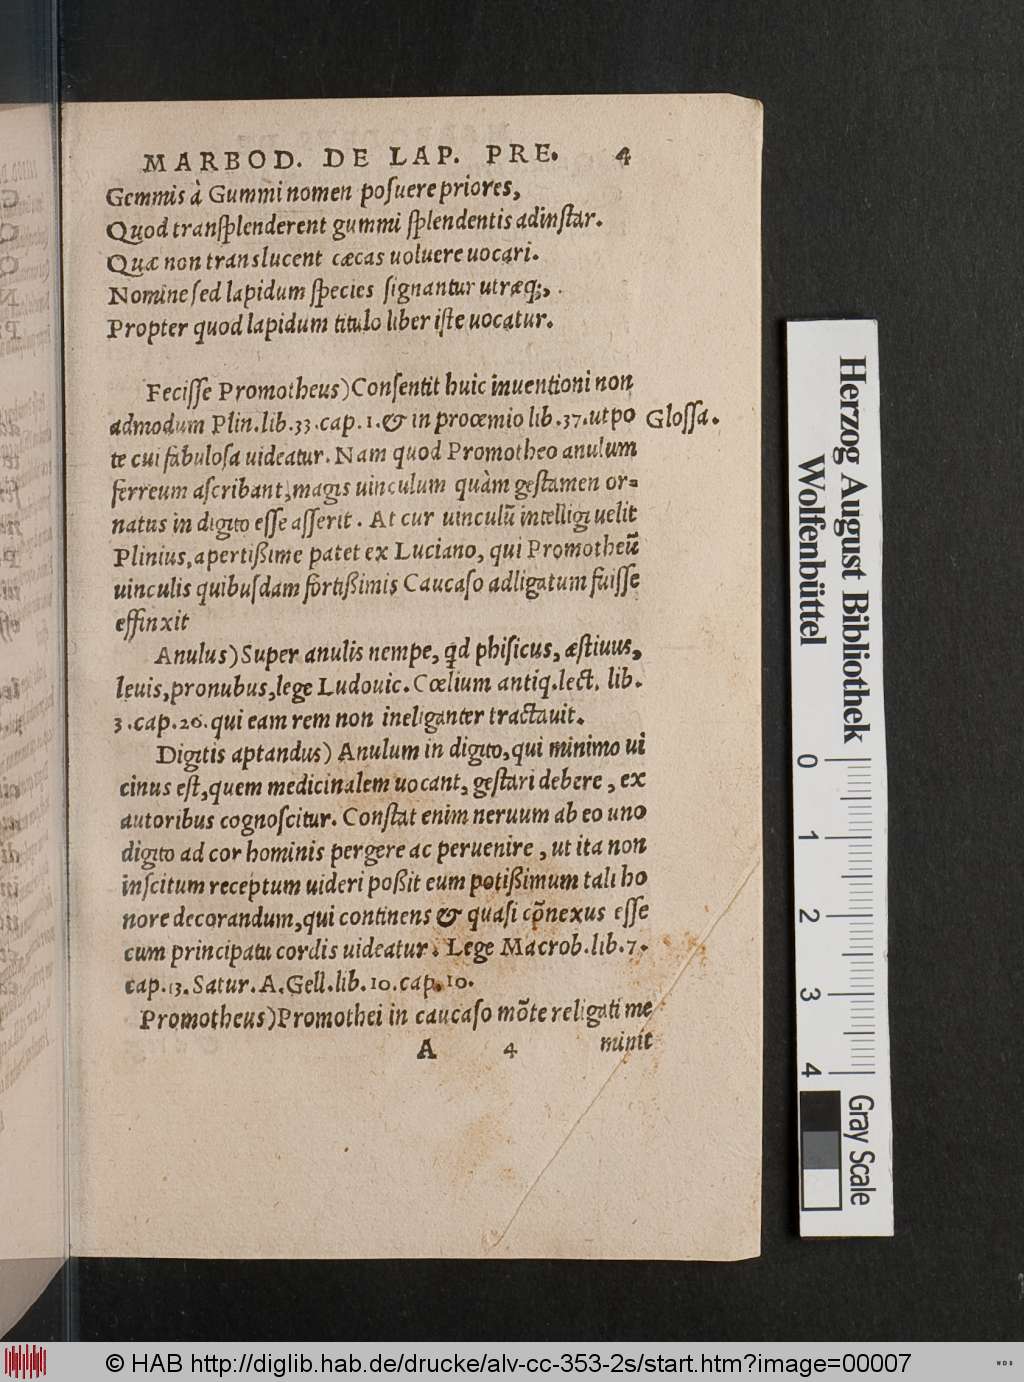 MARBOD. DE LAP. PRE. 4
Gemmis à Gummi nomen posuere priores,
Quod transplenderent gummi splendentis adinstar.
Quæ non translucent cæcas uoluere uocari.
Nomine sed lapidum species signantur utræq;,.
Propter quod lapidum titulo liber iste uocatur.
Fecisse Promotheus) Consentit huic inuentioni non
admodum Plin. lib. 33. cap. 1. & in proœmio lib. 37. ut po
Glossa.
te cui fabulosa uideatur. Nam quod Promotheo anulum
ferreum ascribant, magis uinculum quàm gestamen or=
natus in digito esse asserit. At cur uinculũ intelligi uelit
Plinius, apertißime patet ex Luciano, qui Promotheũ
uinculis quibusdam fortißimis Caucaso adligatum fuisse
effinxit
Anulus) Super anulis nempe, qd phisicus, æstiuus,
leuis, pronubus, lege Ludouic. Cœlium antiq. lect. lib.
3. cap. 26. qui eam rem non ineliganter tractauit.
Digitis aptandus) Anulum in digito, qui minimo ui
cinus est, quem medicinalem uocant, gestari debere, ex
autoribus cognoscitur. Constat enim neruum ab eo uno
digito ad cor hominis pergere ac peruenire, ut ita non
inscitum receptum uideri poßit eum potißimum tali ho
nore decorandum, qui continens & quasi cõnexus esse
cum principatu cordis uideatur. Lege Macrob. lib. 7.
cap. 13. Satur. A. Gell. lib. 10. cap. 10.
Promotheus) Promothei in caucaso mõte religati me
A 4 minit
Herzog August Bibliothek
Wolfenbüttel
0 1 2 3 4
Gray Scale
© HAB http://diglib.hab.de/drucke/alv-cc-353-2s/start.htm?image=00007